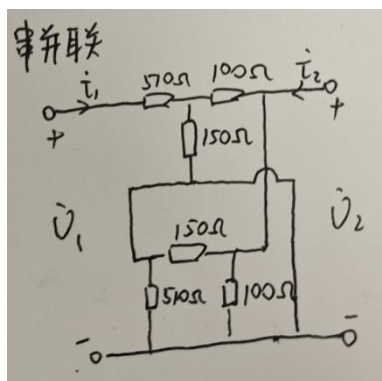 串并联
i̇₁
510Ω
100Ω
i̇₂
+
+
150Ω
U̇₁
150Ω
U̇₂
510Ω
100Ω
-
-